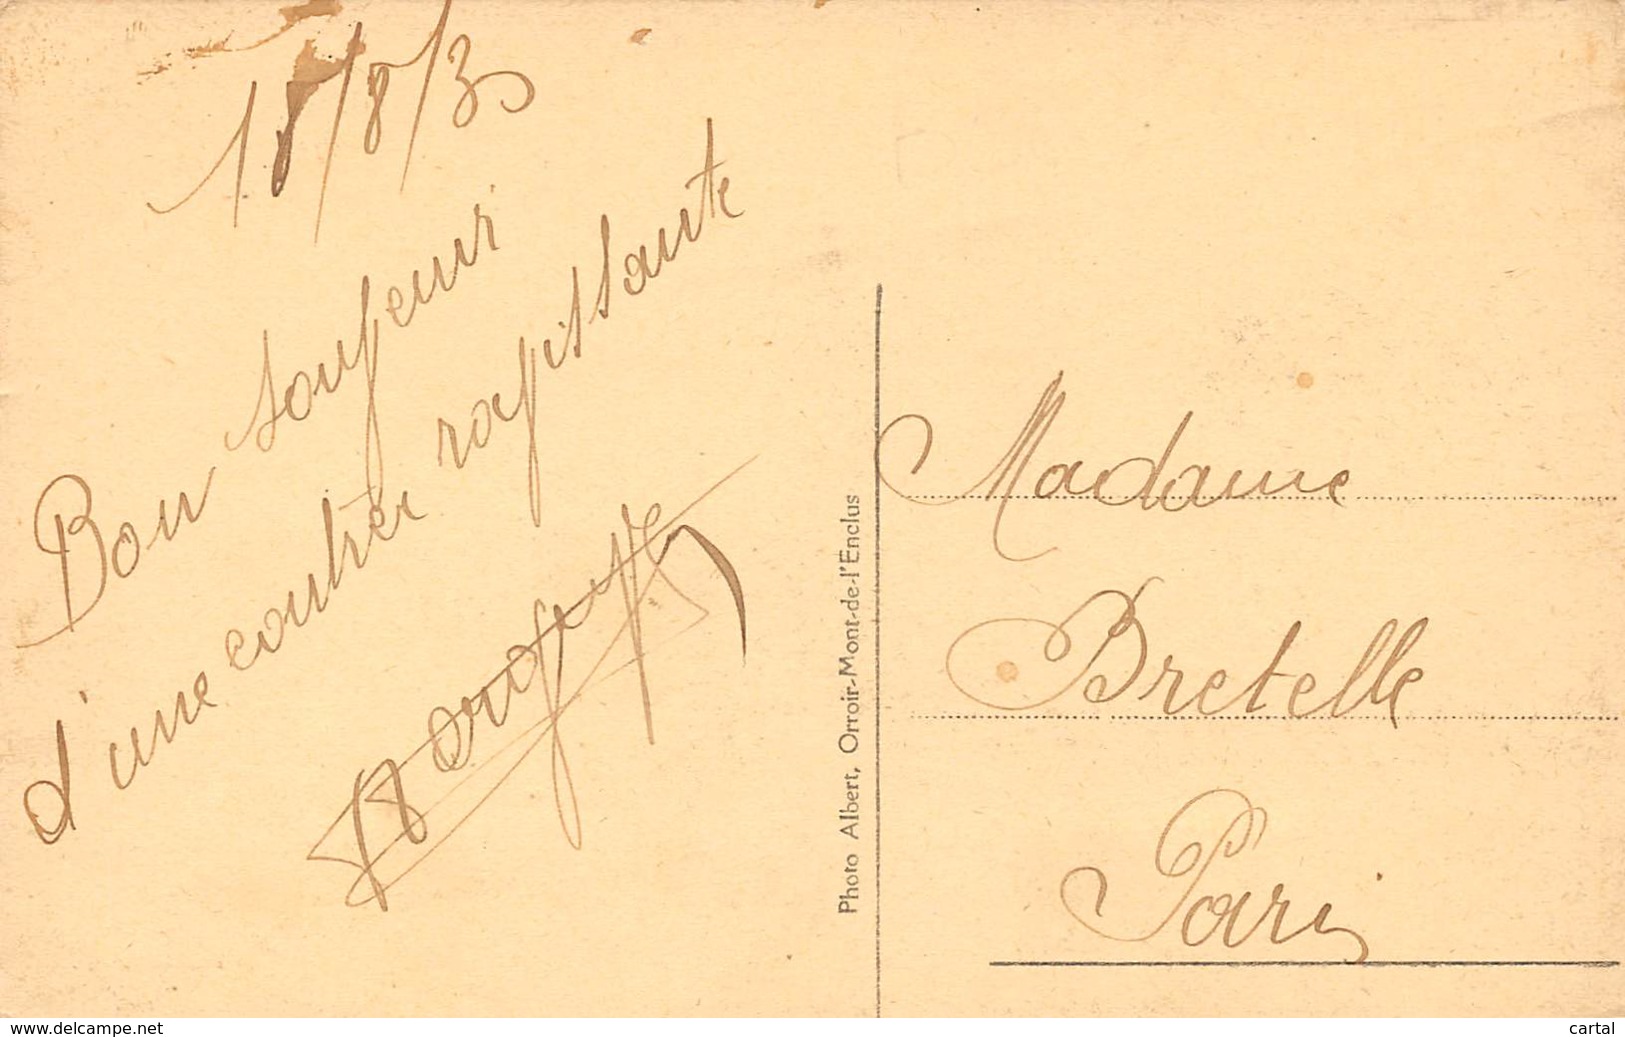 18/8/35
Bon soujeur
d'une contrée rafissante
Photo Albert, Orroir-Mont-de-l'Enclus
Madame
Bretelle
Paris
www.delcampe.net
cartal